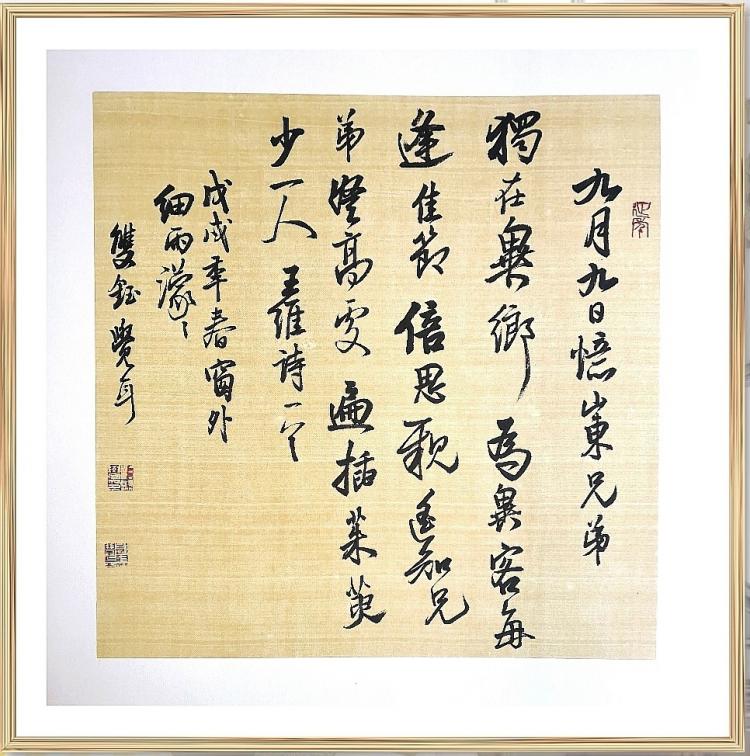 九月九日憶山東兄弟
獨在異鄉為異客每
逢佳節倍思親遙知兄
弟登高處遍插茱萸
少一人 王維詩一首
戊戌年春窗外
細雨濛濛
雙鈺覺耳